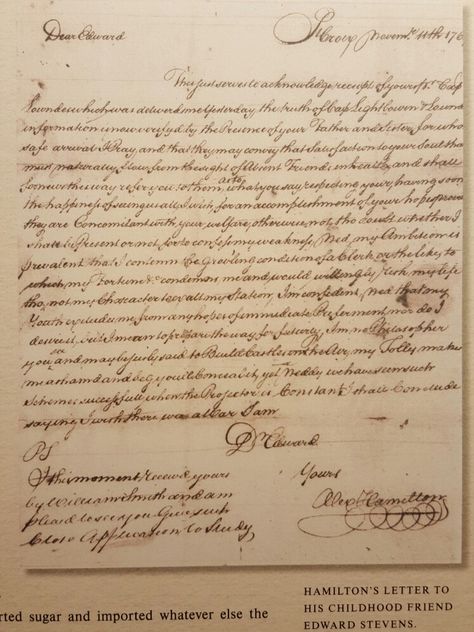 Dear Edward
St Croix Novemr. 11th 176
This just serves to acknowledge receipt of yours pr. Cap
Lowndes which was deliverd me Yesterday, the truth of Cap Lightbowrn & Lownd
information is now verifyd by the Presence of your Father and Sister for who
safe arrival I Pray, and that they may convey that Satisfaction to your Soul tha
must naturally flow from the sight of Absent Friends in health, and shall
for news this way refer you to them, As to what you say respecting your having soon
the happiness of seeing us all I wish, for an accomplishment of your hopes provd
they are Concomitant with your welfare, otherwise not, tho doubt whether I
shall be Present or not for to confess my weakness, Ned, my Ambition is
prevalent that I contemn the Groveling condition of a Clerk or the like, to
which my Fortune &c condemns me and would willingly risk my life
tho' not my Character to exalt my Station, Im confident, Ned that my
Youth excludes me from any hopes of immediate Preferment nor do I
desire it, but I mean to prepare the way for futurity, Im no Philosopher
you see and may be jusly said to Build Castles in the Air, my Folly makes
me ashamd and beg youll Conceal it, yet Neddy we have seen such
Schemes successfull when the Projector is Constant I shall Conclude
saying I wish there was a War I am
Dr Edward
PS
I this moment receivd yours
by William Smith and am
pleasd to see you Give such
Close Application to Study
Yours
Alex Hamilton
HAMILTON'S LETTER TO
HIS CHILDHOOD FRIEND
EDWARD STEVENS.
rted sugar and imported whatever else the